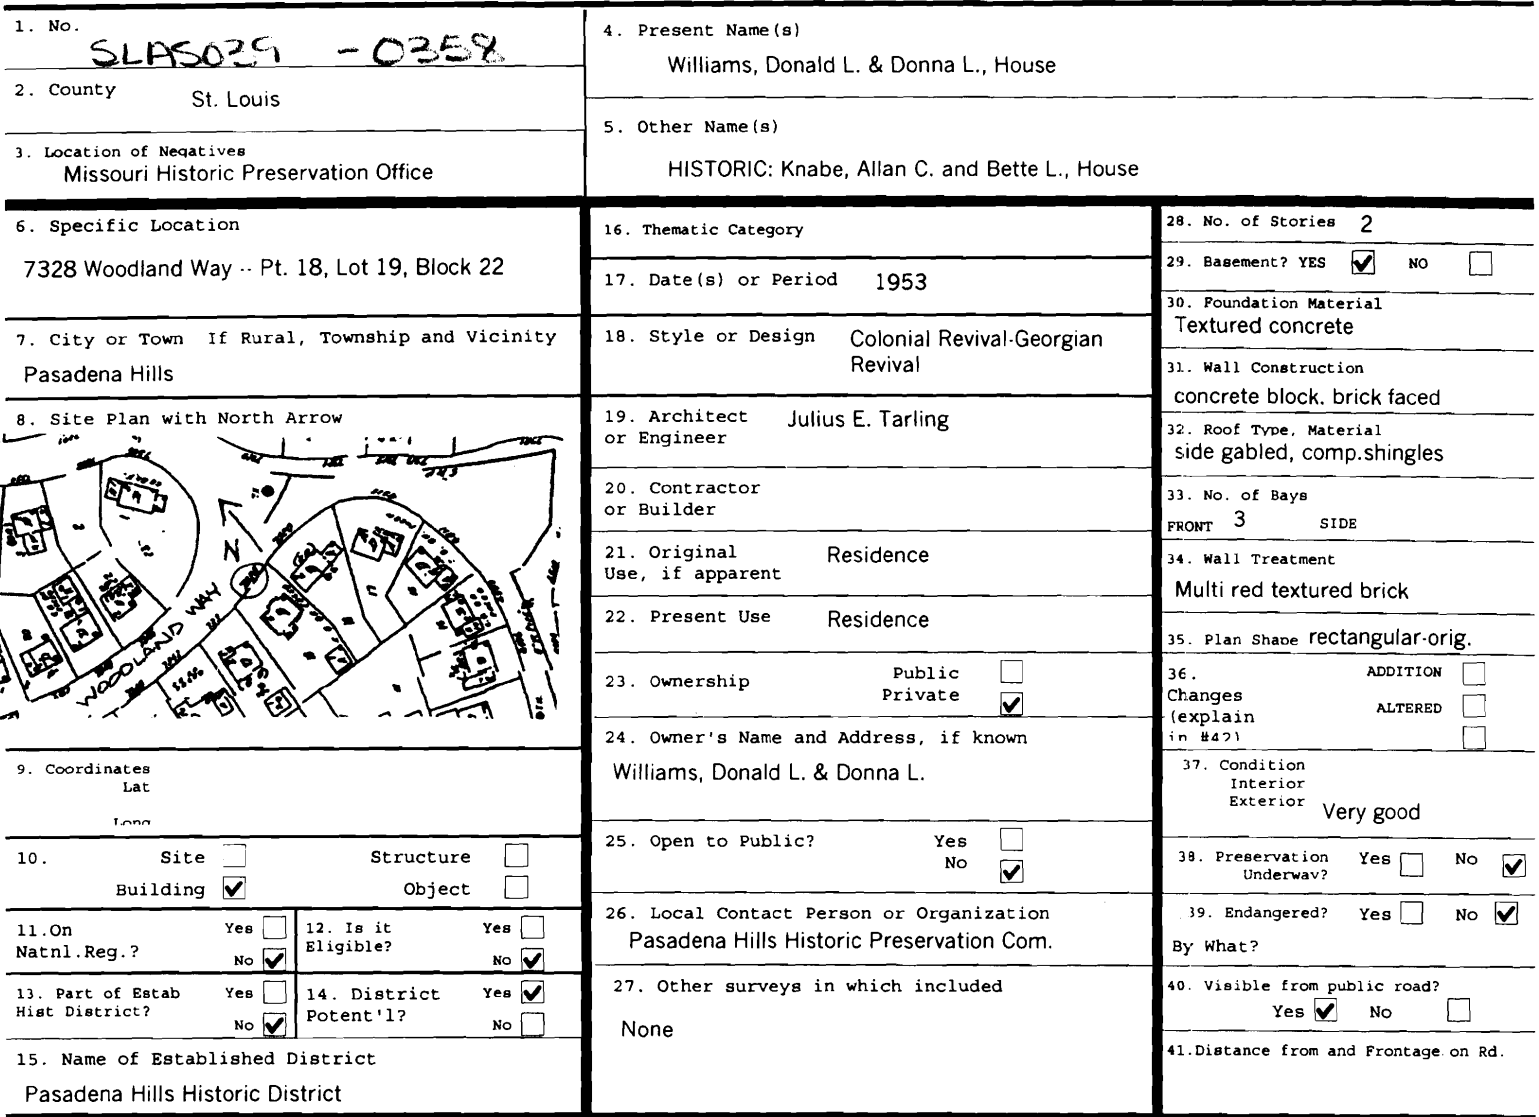 1. No.
SLAS029 -0358
2. County St. Louis
3. Location of Negatives
Missouri Historic Preservation Office
4. Present Name(s)
Williams, Donald L. & Donna L., House
5. Other Name(s)
HISTORIC: Knabe, Allan C. and Bette L., House
6. Specific Location
7328 Woodland Way -- Pt. 18, Lot 19, Block 22
7. City or Town If Rural, Township and Vicinity
Pasadena Hills
8. Site Plan with North Arrow
N
WOODLAND WAY
9. Coordinates
Lat
Long
10. Site Structure
Building ✔ Object
11.On Yes
Natnl.Reg.? No ✔
12. Is it Yes
Eligible? No ✔
13. Part of Estab Yes
Hist District? No ✔
14. District Yes ✔
Potent'l? No
15. Name of Established District
Pasadena Hills Historic District
16. Thematic Category
17. Date(s) or Period 1953
18. Style or Design Colonial Revival-Georgian
Revival
19. Architect Julius E. Tarling
or Engineer
20. Contractor
or Builder
21. Original Residence
Use, if apparent
22. Present Use Residence
23. Ownership Public
Private ✔
24. Owner's Name and Address, if known
Williams, Donald L. & Donna L.
25. Open to Public? Yes
No ✔
26. Local Contact Person or Organization
Pasadena Hills Historic Preservation Com.
27. Other surveys in which included
None
28. No. of Stories 2
29. Basement? YES ✔ NO
30. Foundation Material
Textured concrete
31. Wall Construction
concrete block. brick faced
32. Roof Type, Material
side gabled, comp.shingles
33. No. of Bays
FRONT 3 SIDE
34. Wall Treatment
Multi red textured brick
35. Plan Shape rectangular-orig.
36. ADDITION
Changes
(explain ALTERED
in #42)
37. Condition
Interior
Exterior Very good
38. Preservation Yes No ✔
Underway?
39. Endangered? Yes No ✔
By What?
40. Visible from public road?
Yes ✔ No
41.Distance from and Frontage on Rd.